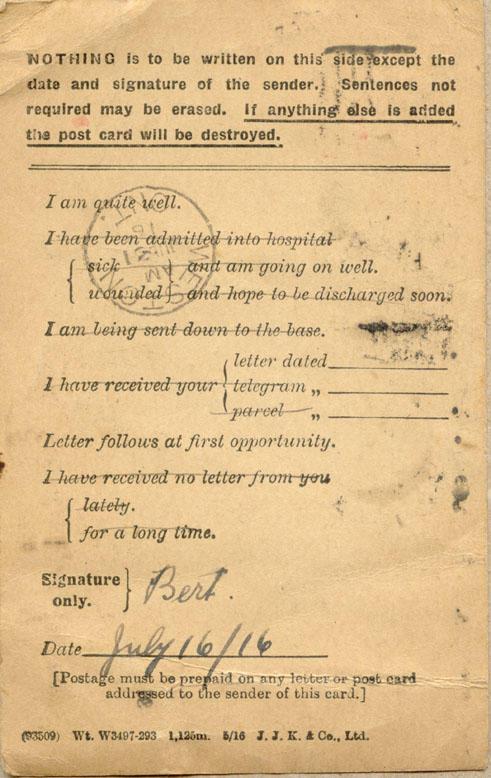 NOTHING is to be written on this side except the
date and signature of the sender. Sentences not
required may be erased. If anything else is added
the post card will be destroyed.
I am quite well.
I have been admitted into hospital
sick } and am going on well.
wounded } and hope to be discharged soon.
I am being sent down to the base.
letter dated
I have received your { telegram „
parcel „
Letter follows at first opportunity.
I have received no letter from you
lately.
for a long time.
Signature
only. } Bert.
Date July 16/16
[Postage must be prepaid on any letter or post card
addressed to the sender of this card.]
(93509) Wt. W3497-293 1,125m. 5/16 J. J. K. & Co., Ltd.